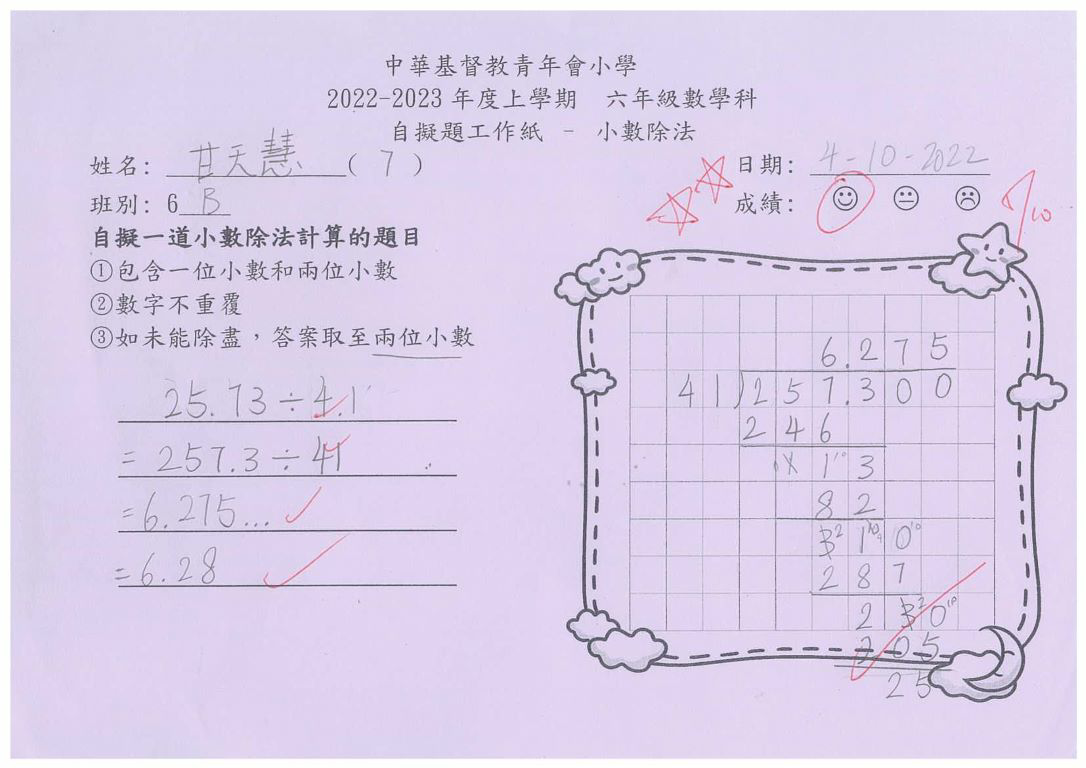 中華基督教青年會小學
2022-2023 年度上學期 六年級數學科
自擬題工作紙 - 小數除法
姓名: 甘天慧 ( 7 )
日期: 4-10-2022
班別: 6 B
成績:
自擬一道小數除法計算的題目
①包含一位小數和兩位小數
②數字不重覆
③如未能除盡，答案取至兩位小數
25.73 ÷ 4.1
= 257.3 ÷ 41
= 6.275...
= 6.28
6.275
41)257.300
246
113
82
310
287
230
205
25